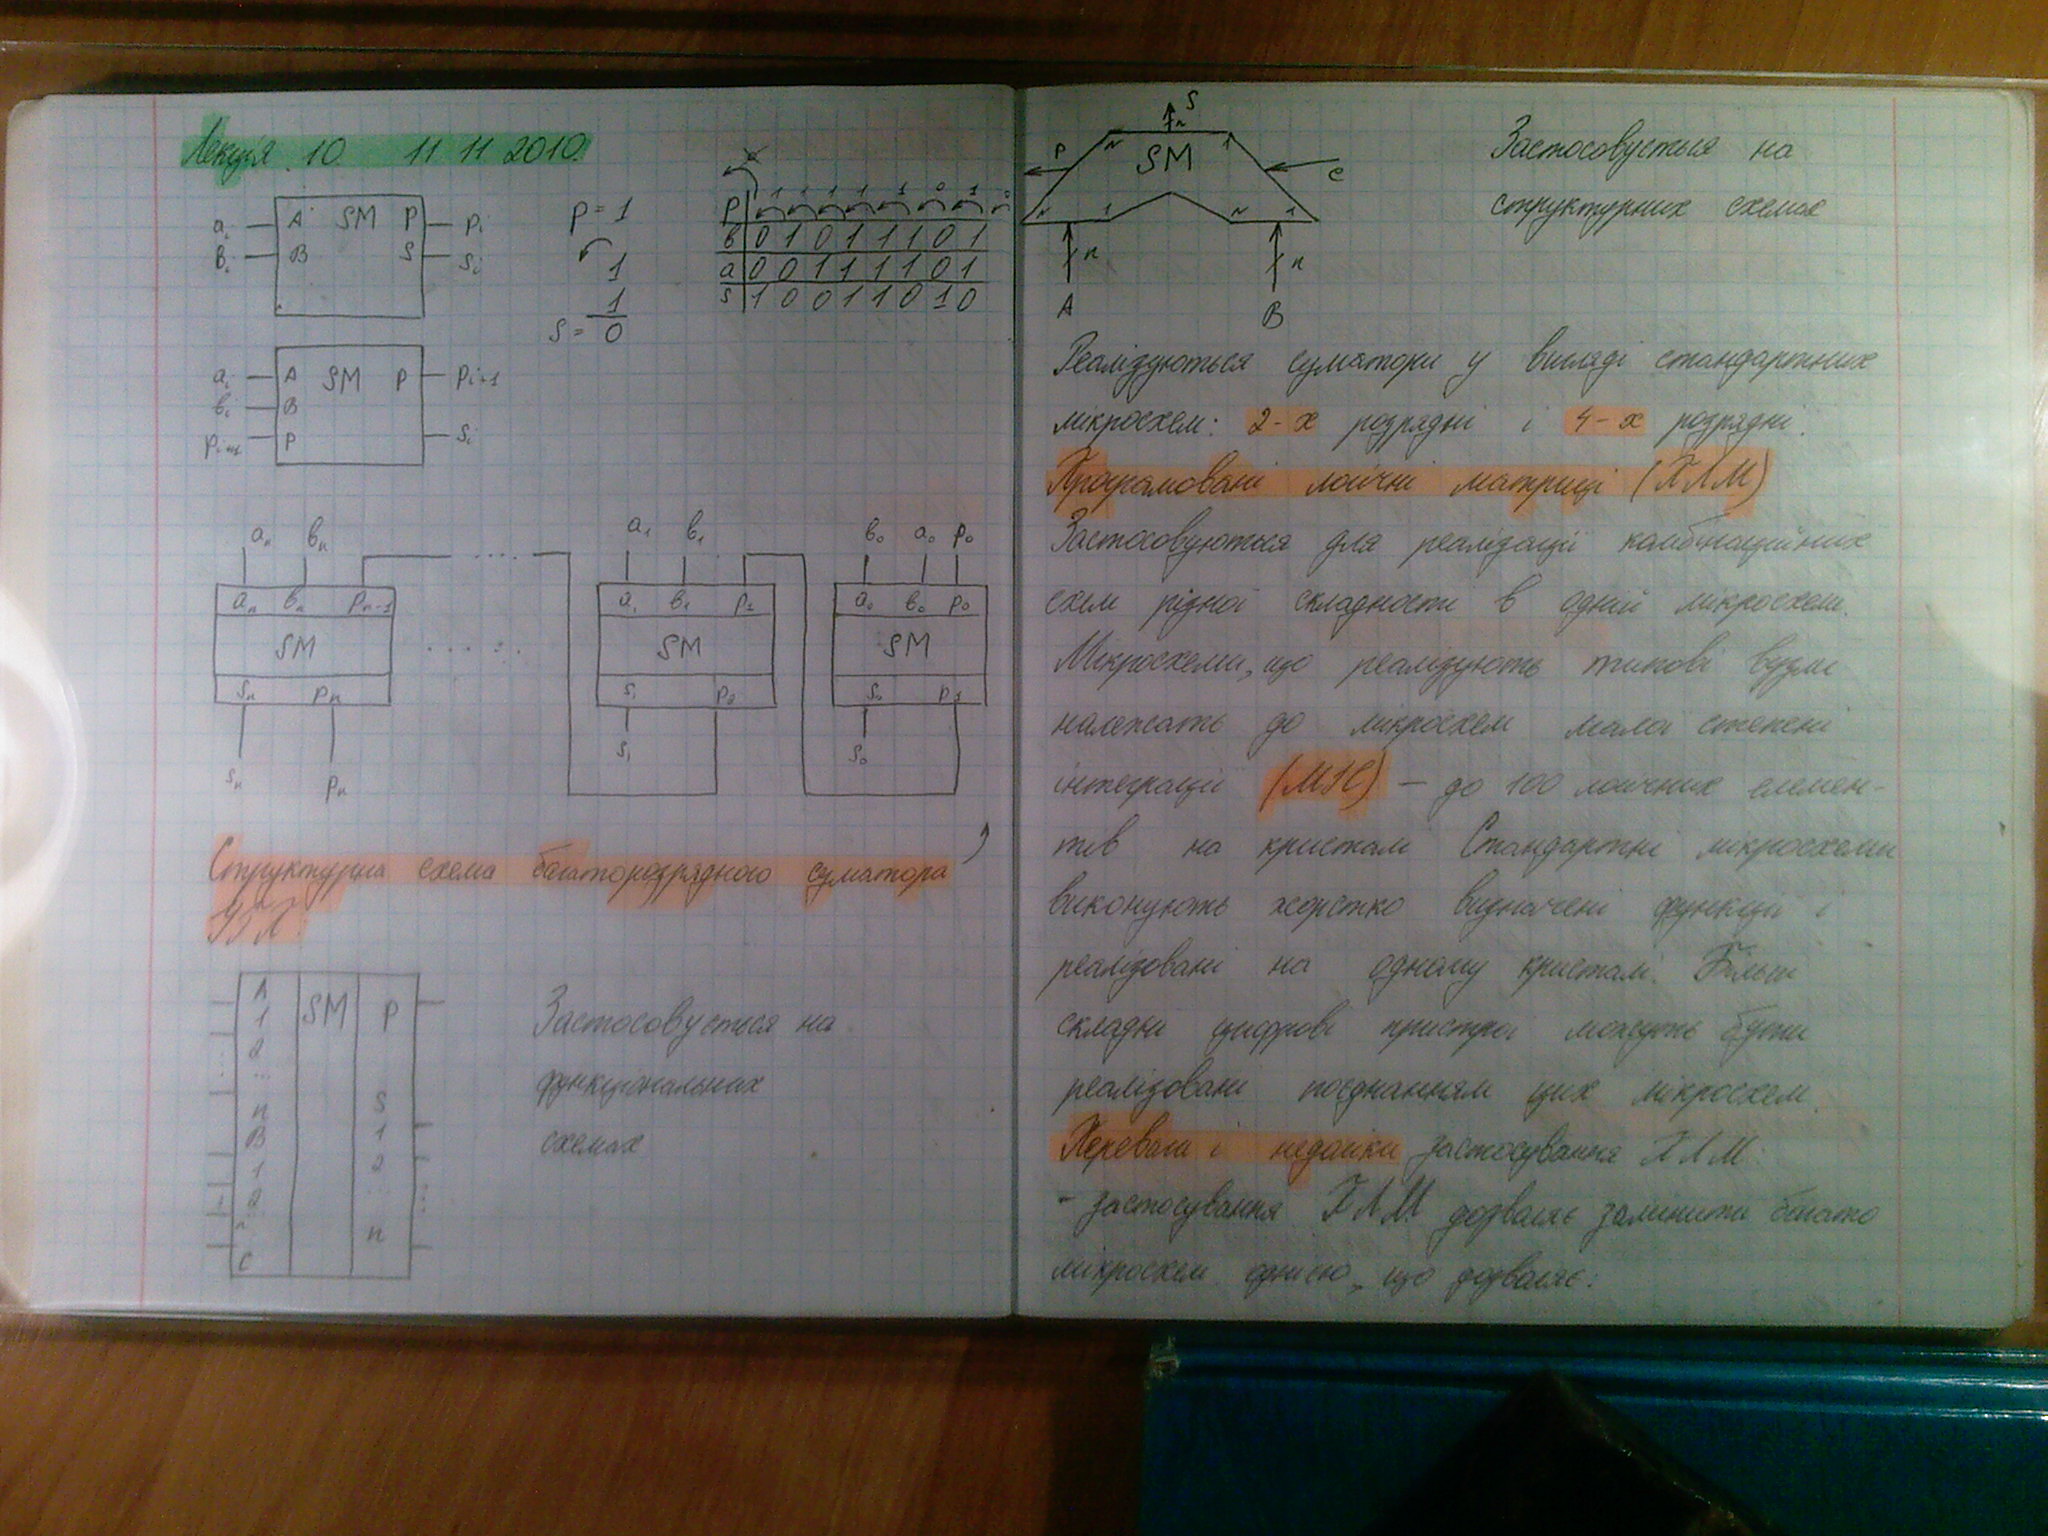 Лекція 10 11 11 2010.
aᵢ A SM P pᵢ
вᵢ B S sᵢ
p = 1
1
1
S = 0
p 1 1 1 1 1 0 1
в 0 1 0 1 1 1 0 1
a 0 0 1 1 1 1 0 1
s 1 0 0 1 1 0 1 0
aᵢ A SM P pᵢ₊₁
вᵢ B
P sᵢ
aₙ вₙ .... a₁ в₁ в₀ a₀ p₀
aₙ вₙ pₙ₋₁ a₁ в₁ p₁ a₀ в₀ p₀
SM ..... SM SM
sₙ pₙ s₁ p₂ s₀ p₁
sₙ pₙ s₁ s₀
Структурна схема багаторозрядного суматора
A SM P
1
2
...
n S
B 1
1 2
2 ...
n n
C
Застосовується на
функціональних
схемах
S
n
P N SM 1 C
N 1 N 1
n n
A B
Застосовується на
структурних схемах
Реалізуються суматори у вигляді стандартних
мікросхем: 2-х розрядні і 4-х розрядні.
Програмовані логічні матриці (ПЛМ)
Застосовуються для реалізації комбінаційних
схем різної складності в одній мікросхемі.
Мікросхеми, що реалізують типові вузли
належать до мікросхем малої степені
інтеграції (МІС) – до 100 логічних елемен-
тів на кристалі Стандартні мікросхеми
виконують жорстко визначені функції і
реалізовані на одному кристалі. Більш
складні цифрові пристрої можуть бути
реалізовані поєднанням цих мікросхем.
Переваги і недоліки застосування ПЛМ:
- застосування ПЛМ дозволяє замінити багато
мікросхем однією, що дозволяє: